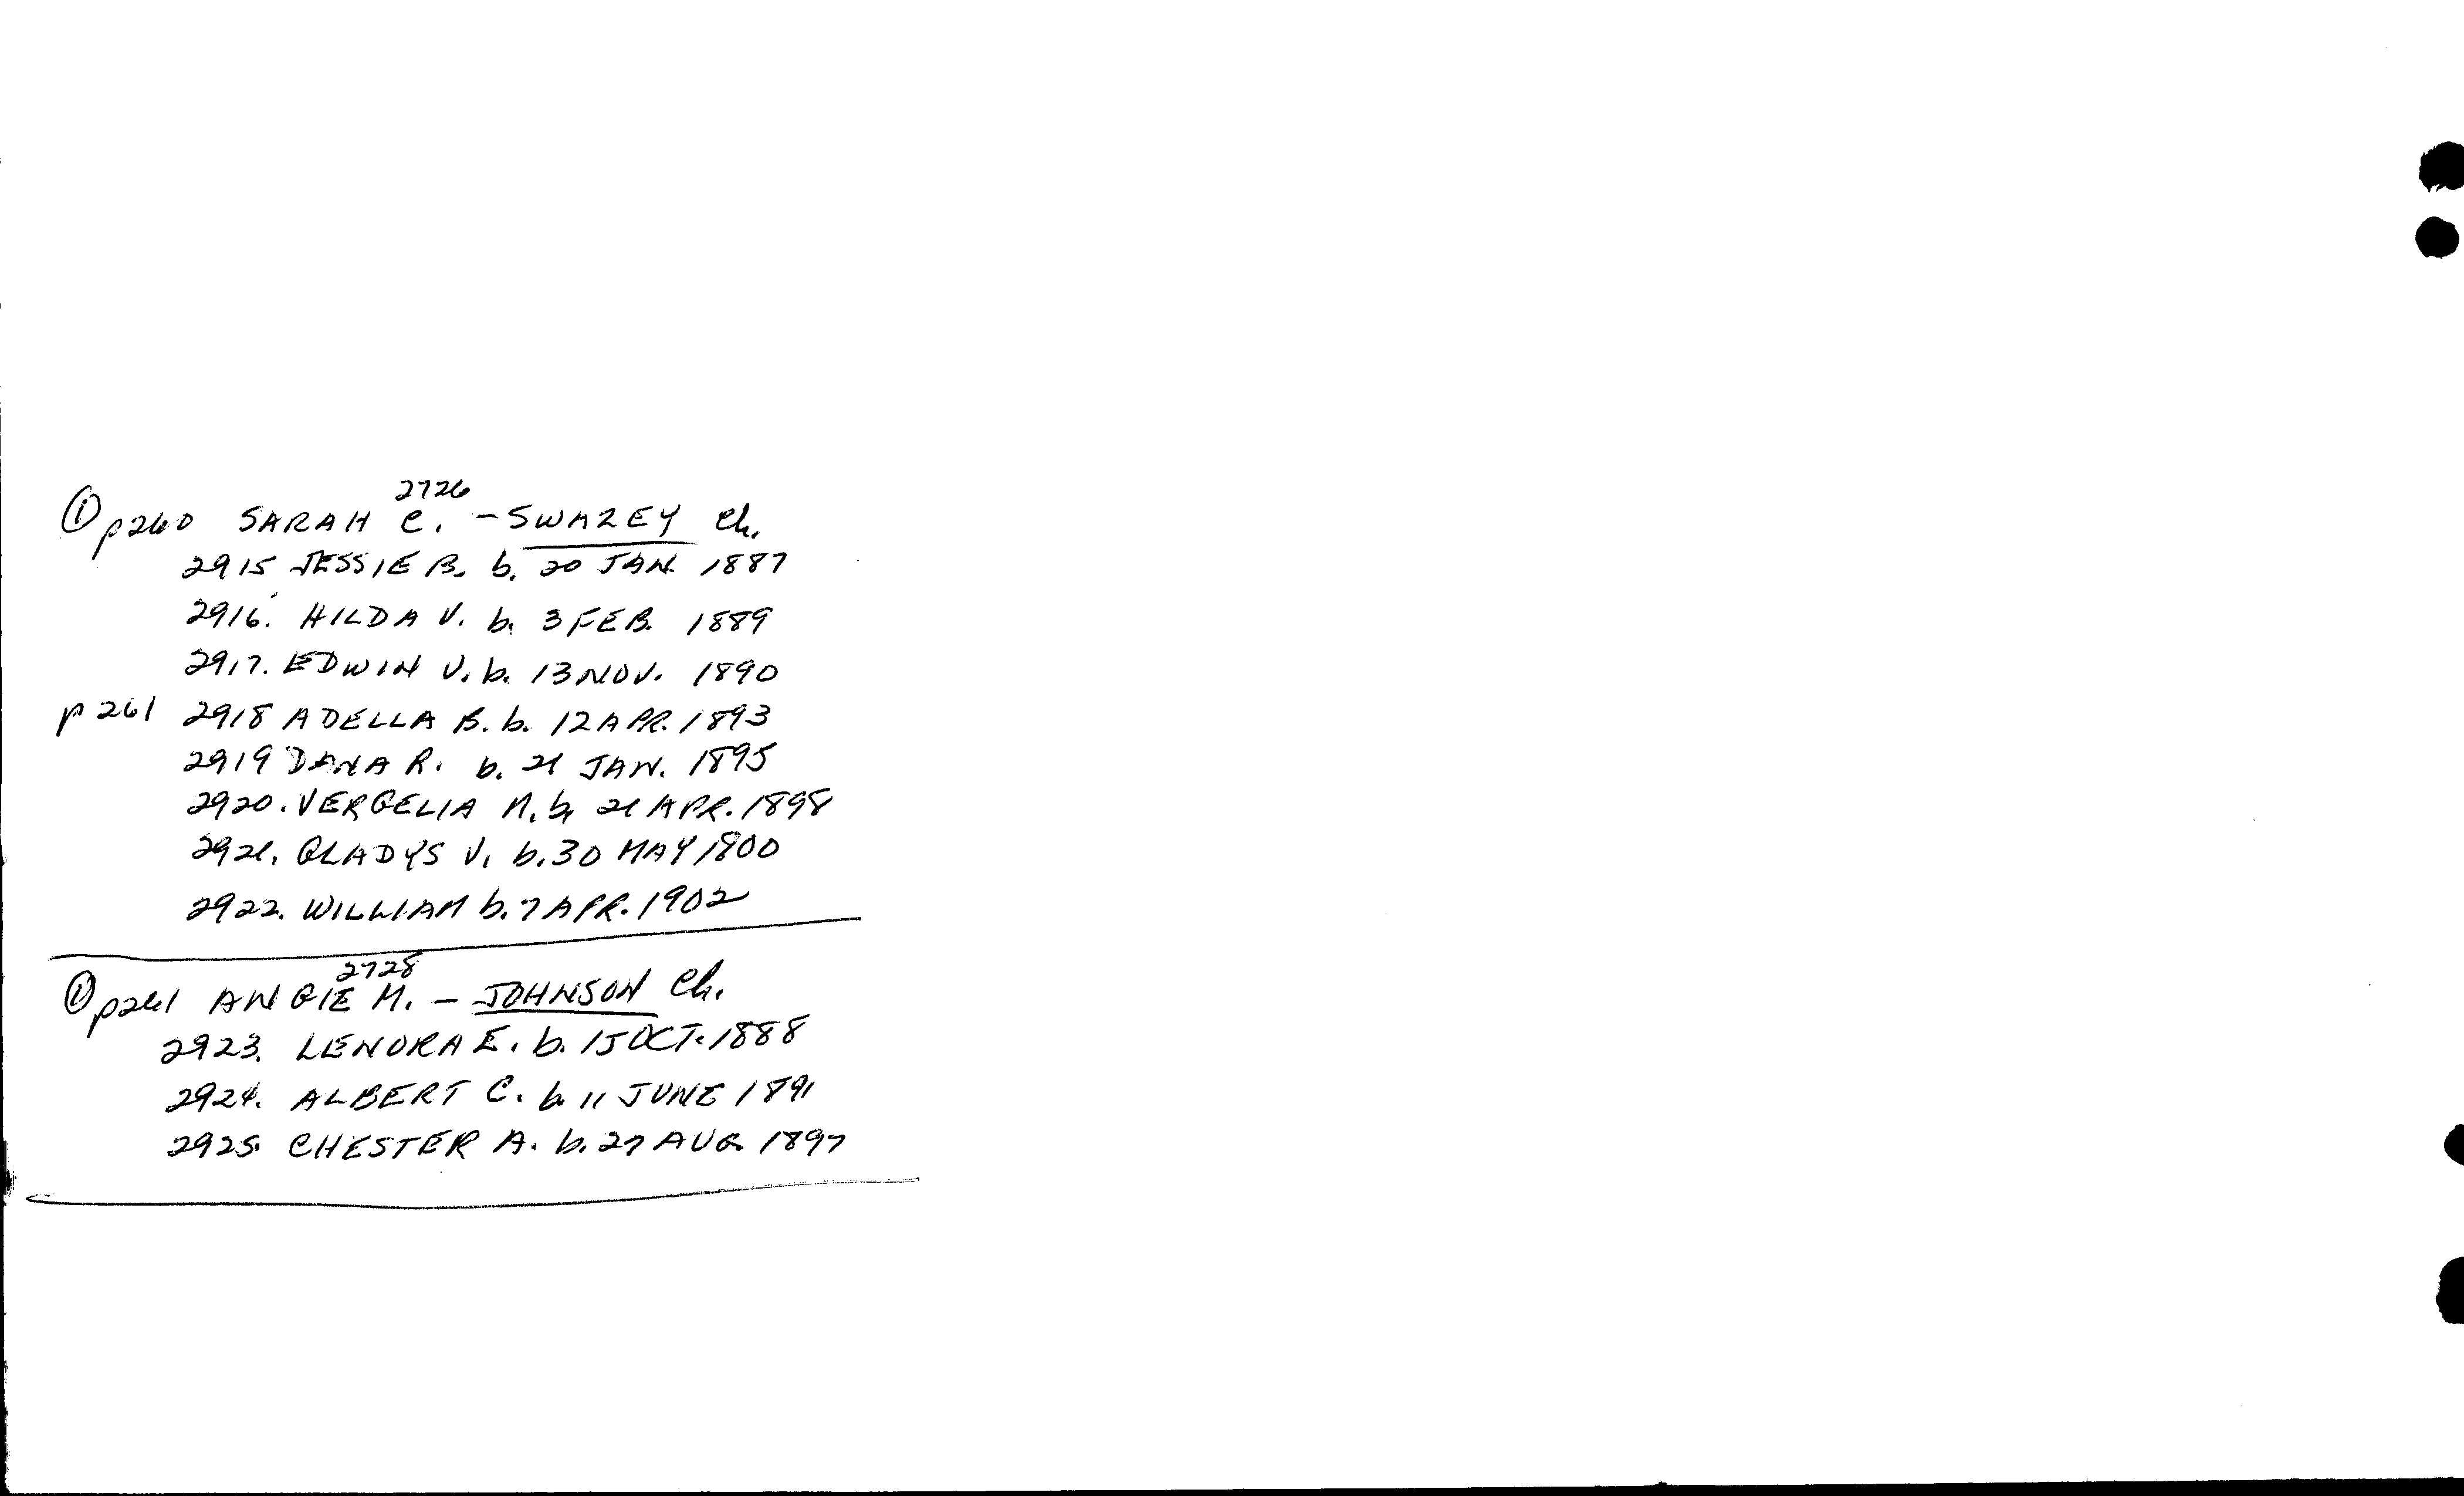 2726
① p260 SARAH C. - SWAZEY Ch.
2915 JESSIE B. b. 20 JAN. 1887
2916. HILDA V. b. 3 FEB. 1889
2917. EDWIN V. b. 13 NOV. 1890
p 261 2918 ADELLA B. b. 12 APR. 1893
2919 DANA R. b. 21 JAN. 1895
2920. VERGELIA M. b. 21 APR. 1898
2921. GLADYS V. b. 30 MAY 1900
2922. WILLIAM b. 7 APR. 1902
2728
① p261 ANGIE M. - JOHNSON Ch.
2923. LENORA E. b. 15 OCT. 1888
2924. ALBERT C. b. 11 JUNE 1891
2925. CHESTER A. b. 27 AUG. 1897